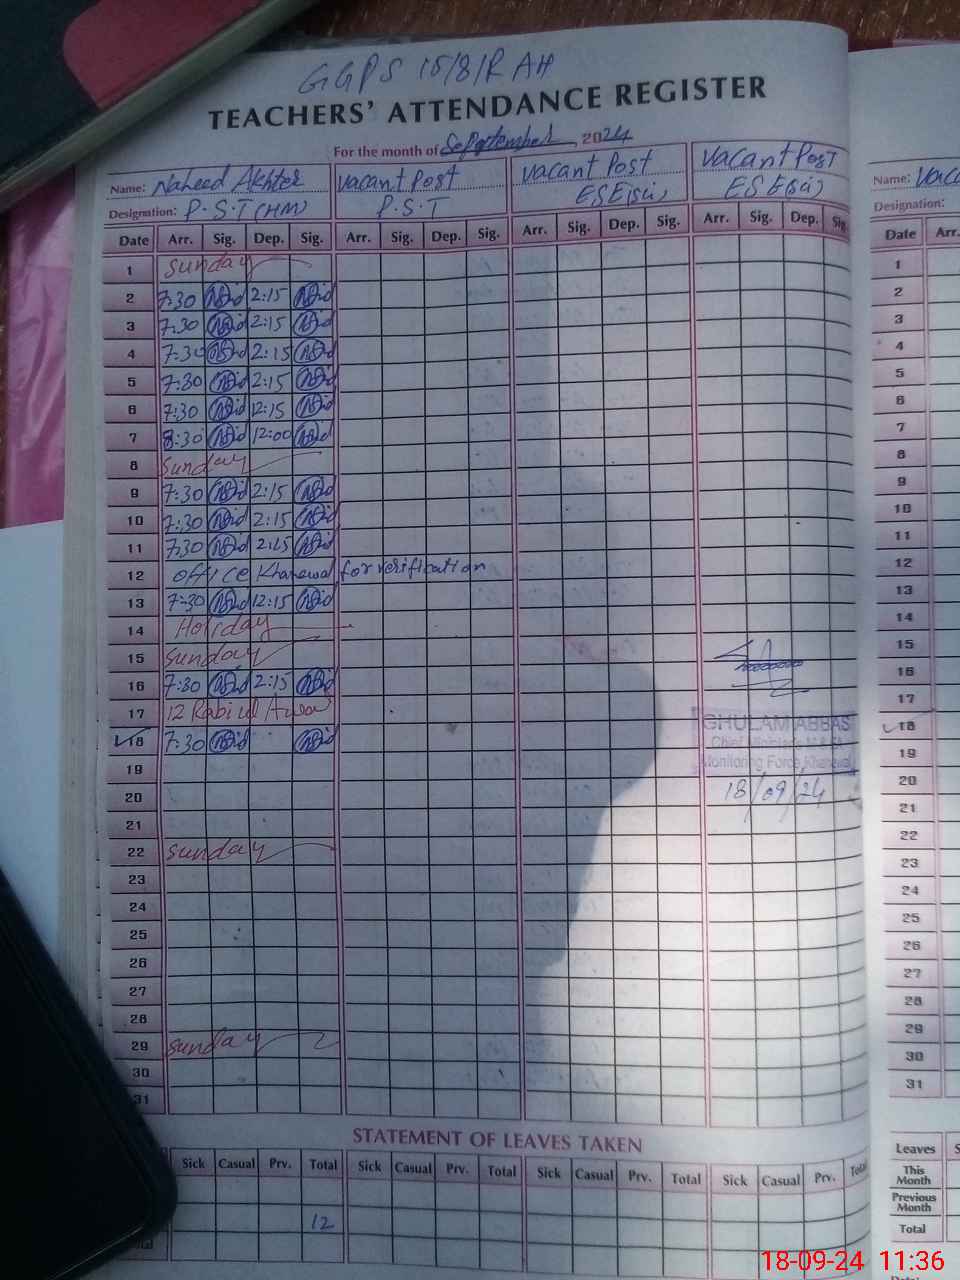 GGPS 15/8/R AH
TEACHERS' ATTENDANCE REGISTER
For the month of September, 2024
Name: Naheed Akhter Vacant Post Vacant Post Vacant Post Name: Vaca
Designation: P.S.T (HM) P.S.T ESE(Sci) ESE(Sci) Designation:
Date Arr. Sig. Dep. Sig. Arr. Sig. Dep. Sig. Arr. Sig. Dep. Sig. Arr. Sig. Dep. Sig. Date Arr.
1 Sunday 1
2 7:30 2:15 2
3 7:30 2:15 3
4 7:30 2:15 4
5 7:30 2:15 5
6 7:30 12:15 6
7 8:30 12:00 7
8 Sunday 8
9 7:30 2:15 9
10 7:30 2:15 10
11 7:30 2:15 11
12 office Khanewal for verification 12
13 7:30 12:15 13
14 Holiday 14
15 Sunday 15
16 7:30 2:15 16
17 12 Rabi ul Awal 17
18 7:30 GHULAM ABBAS 18
Monitoring Force Khanewal
19 19
20 18/09/24 20
21 21
22 Sunday 22
23 23
24 24
25 25
26 26
27 27
28 28
29 Sunday 29
30 30
31 31
STATEMENT OF LEAVES TAKEN
Sick Casual Prv. Total Sick Casual Prv. Total Sick Casual Prv. Total Sick Casual Prv. Total Leaves S
This Month
12 Previous Month
Total
18-09-24 11:36